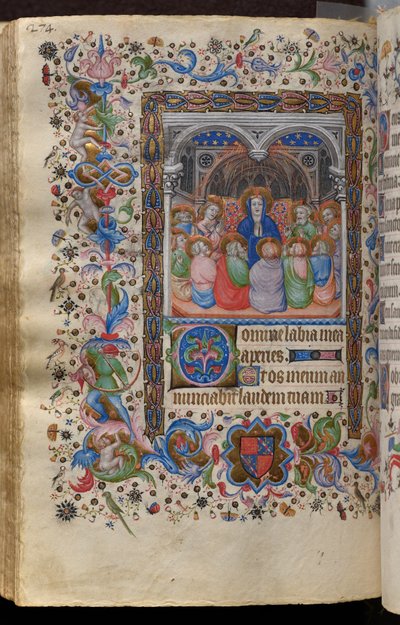 274
Domine labia mea
aperies.
Et os meum an
nunciabit laudem tuam